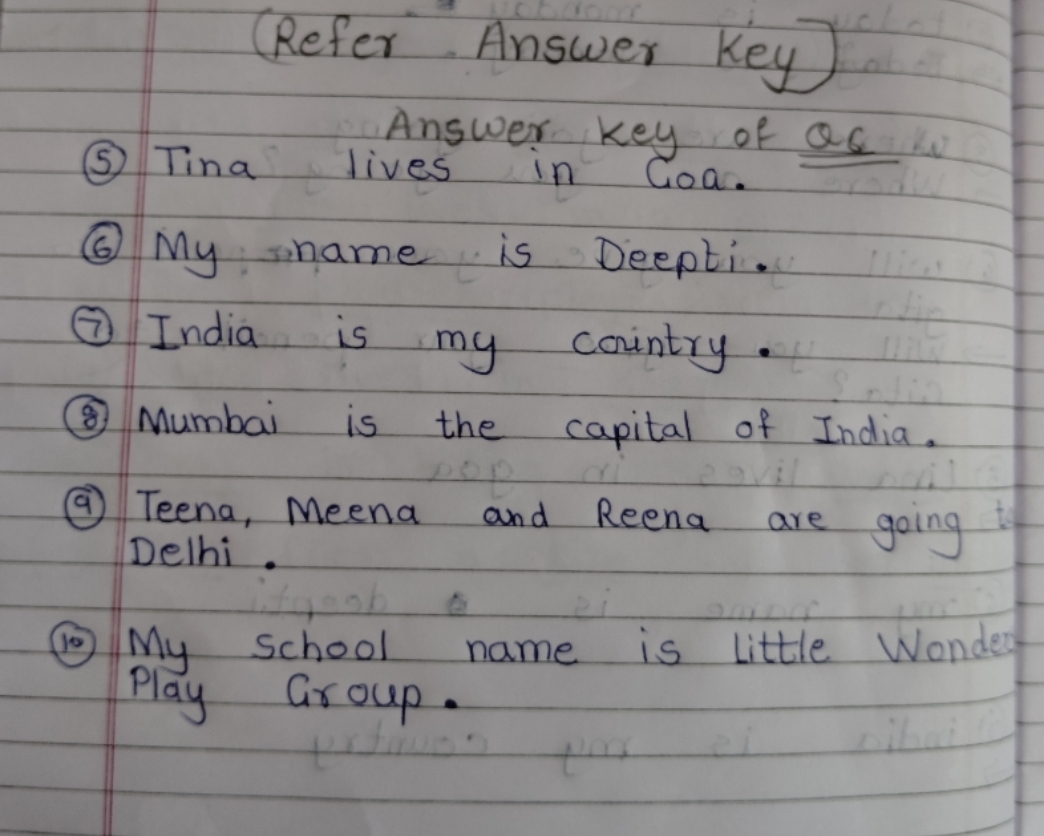 (Refer Answer Key)
Answer key of Q6
5 Tina lives in Goa.
6 My name is Deepti.
7 India is my country.
8 Mumbai is the capital of India.
9 Teena, Meena and Reena are going to
Delhi.
10 My school name is Little Wonder
Play Group.